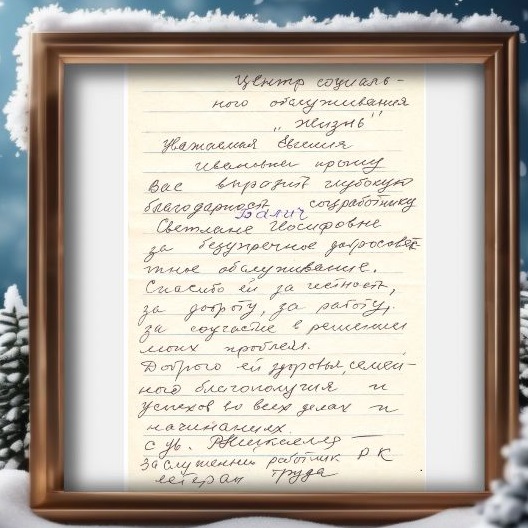 Центр социаль-
ного обслуживания
"Жизнь"
Уважаемая Евгения
Ивановна прошу
Вас выразить глубокую
благодарность соцработнику
Балич
Светлане Иосифовне
за безупречное добросовест-
тное обслуживание.
Спасибо ей за честность,
за доброту, за работу,
за соучастие в решении
моих проблем.
Доброго ей здоровья, семей-
ного благополучия и
успехов во всех делах и
начинаниях.
с ув.
Заслуженный работник РК
ветеран труда